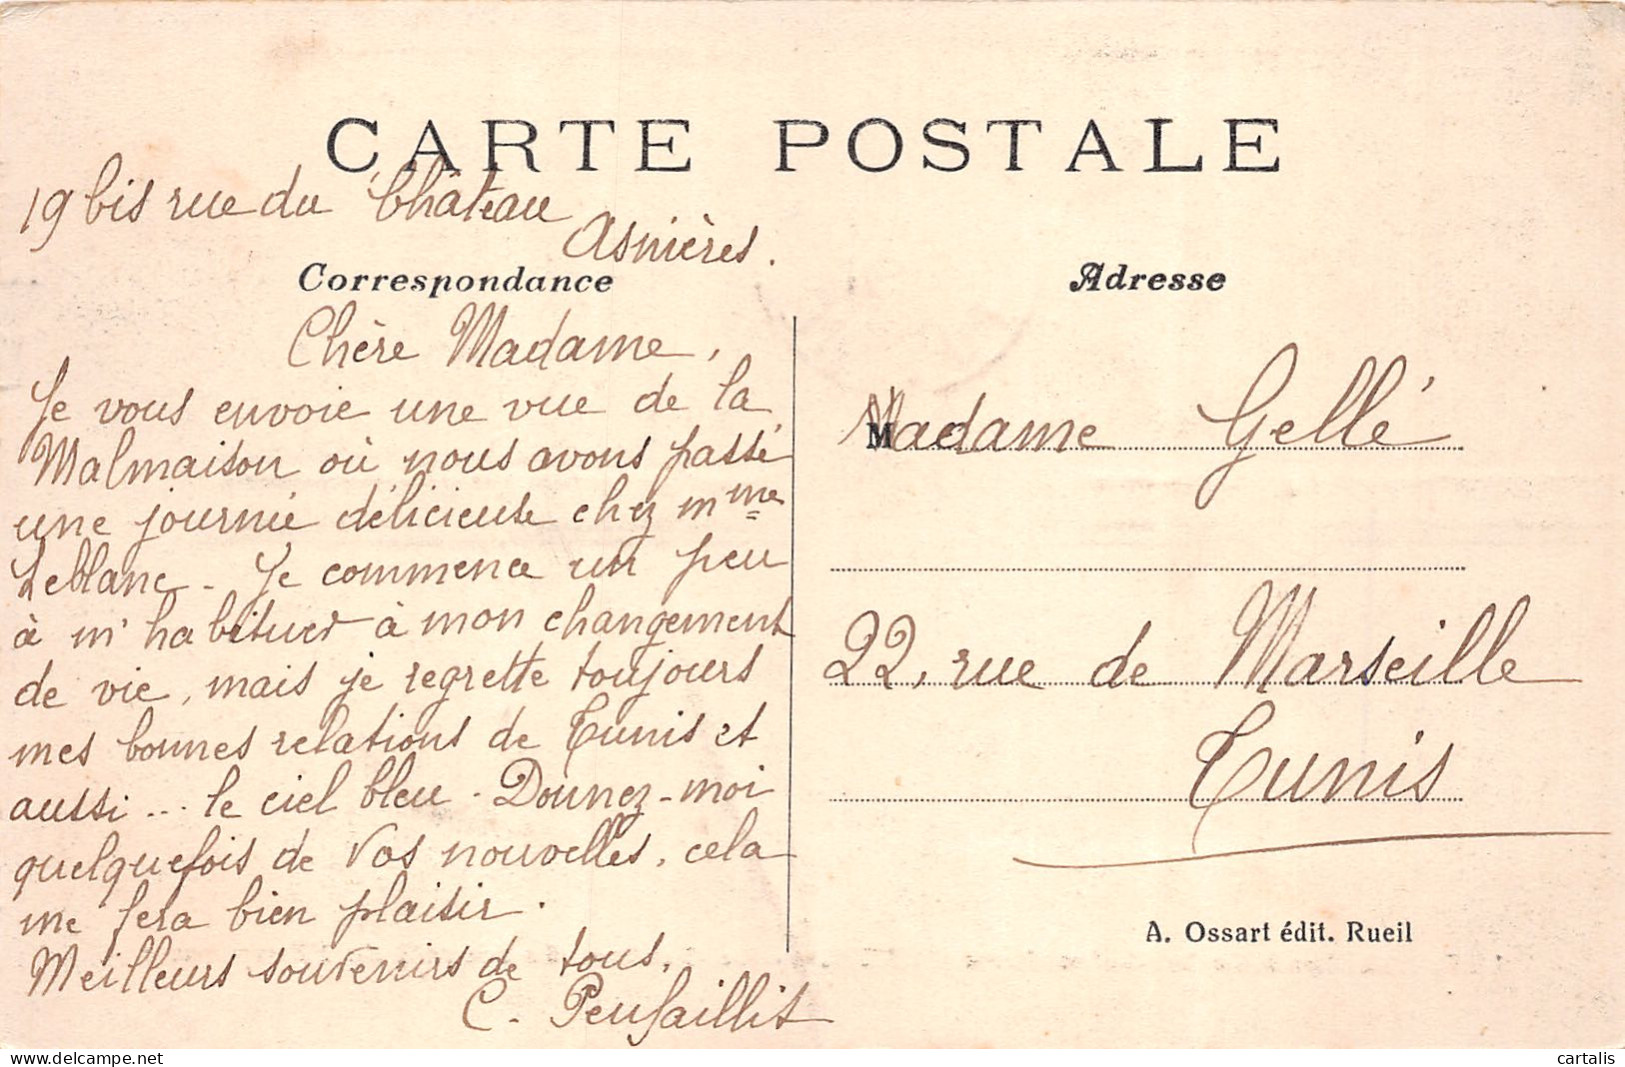 CARTE POSTALE
19 bis rue du Château
Asnières.
Correspondance
Chère Madame,
Je vous envoie une vue de la
Malmaison où nous avons passé
une journée délicieuse chez Mme
Leblanc - Je commence un peu
à m'habituer à mon changement
de vie, mais je regrette toujours
mes bonnes relations de Tunis et
aussi ... le ciel bleu. Donnez-moi
quelquefois de vos nouvelles, cela
me fera bien plaisir.
Meilleurs souvenirs de tous.
C.
Adresse
Madame Gellé
22, rue de Marseille
Tunis
A. Ossart édit. Rueil
cartalis
http://www.delcampe.net